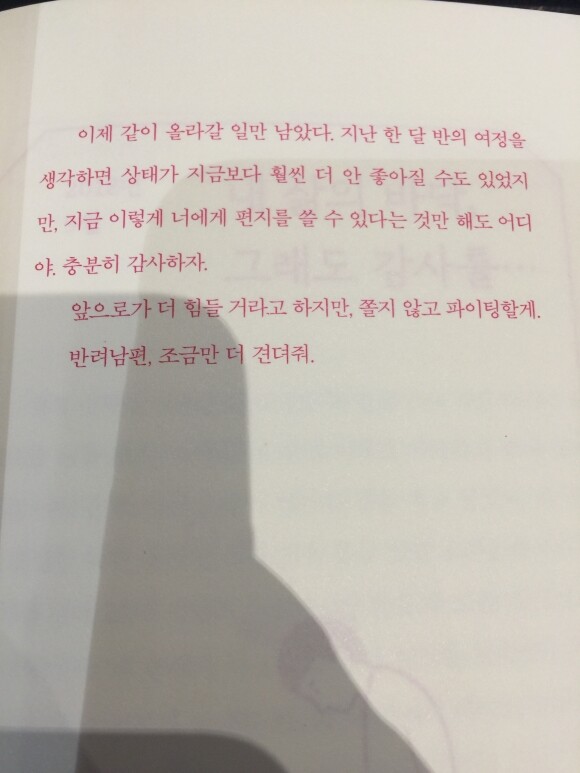 이제 같이 올라갈 일만 남았다. 지난 한 달 반의 여정을
생각하면 상태가 지금보다 훨씬 더 안 좋아질 수도 있었지
만, 지금 이렇게 너에게 편지를 쓸 수 있다는 것만 해도 어디
야. 충분히 감사하자.
앞으로가 더 힘들 거라고 하지만, 쫄지 않고 파이팅할게.
반려남편, 조금만 더 견뎌줘.